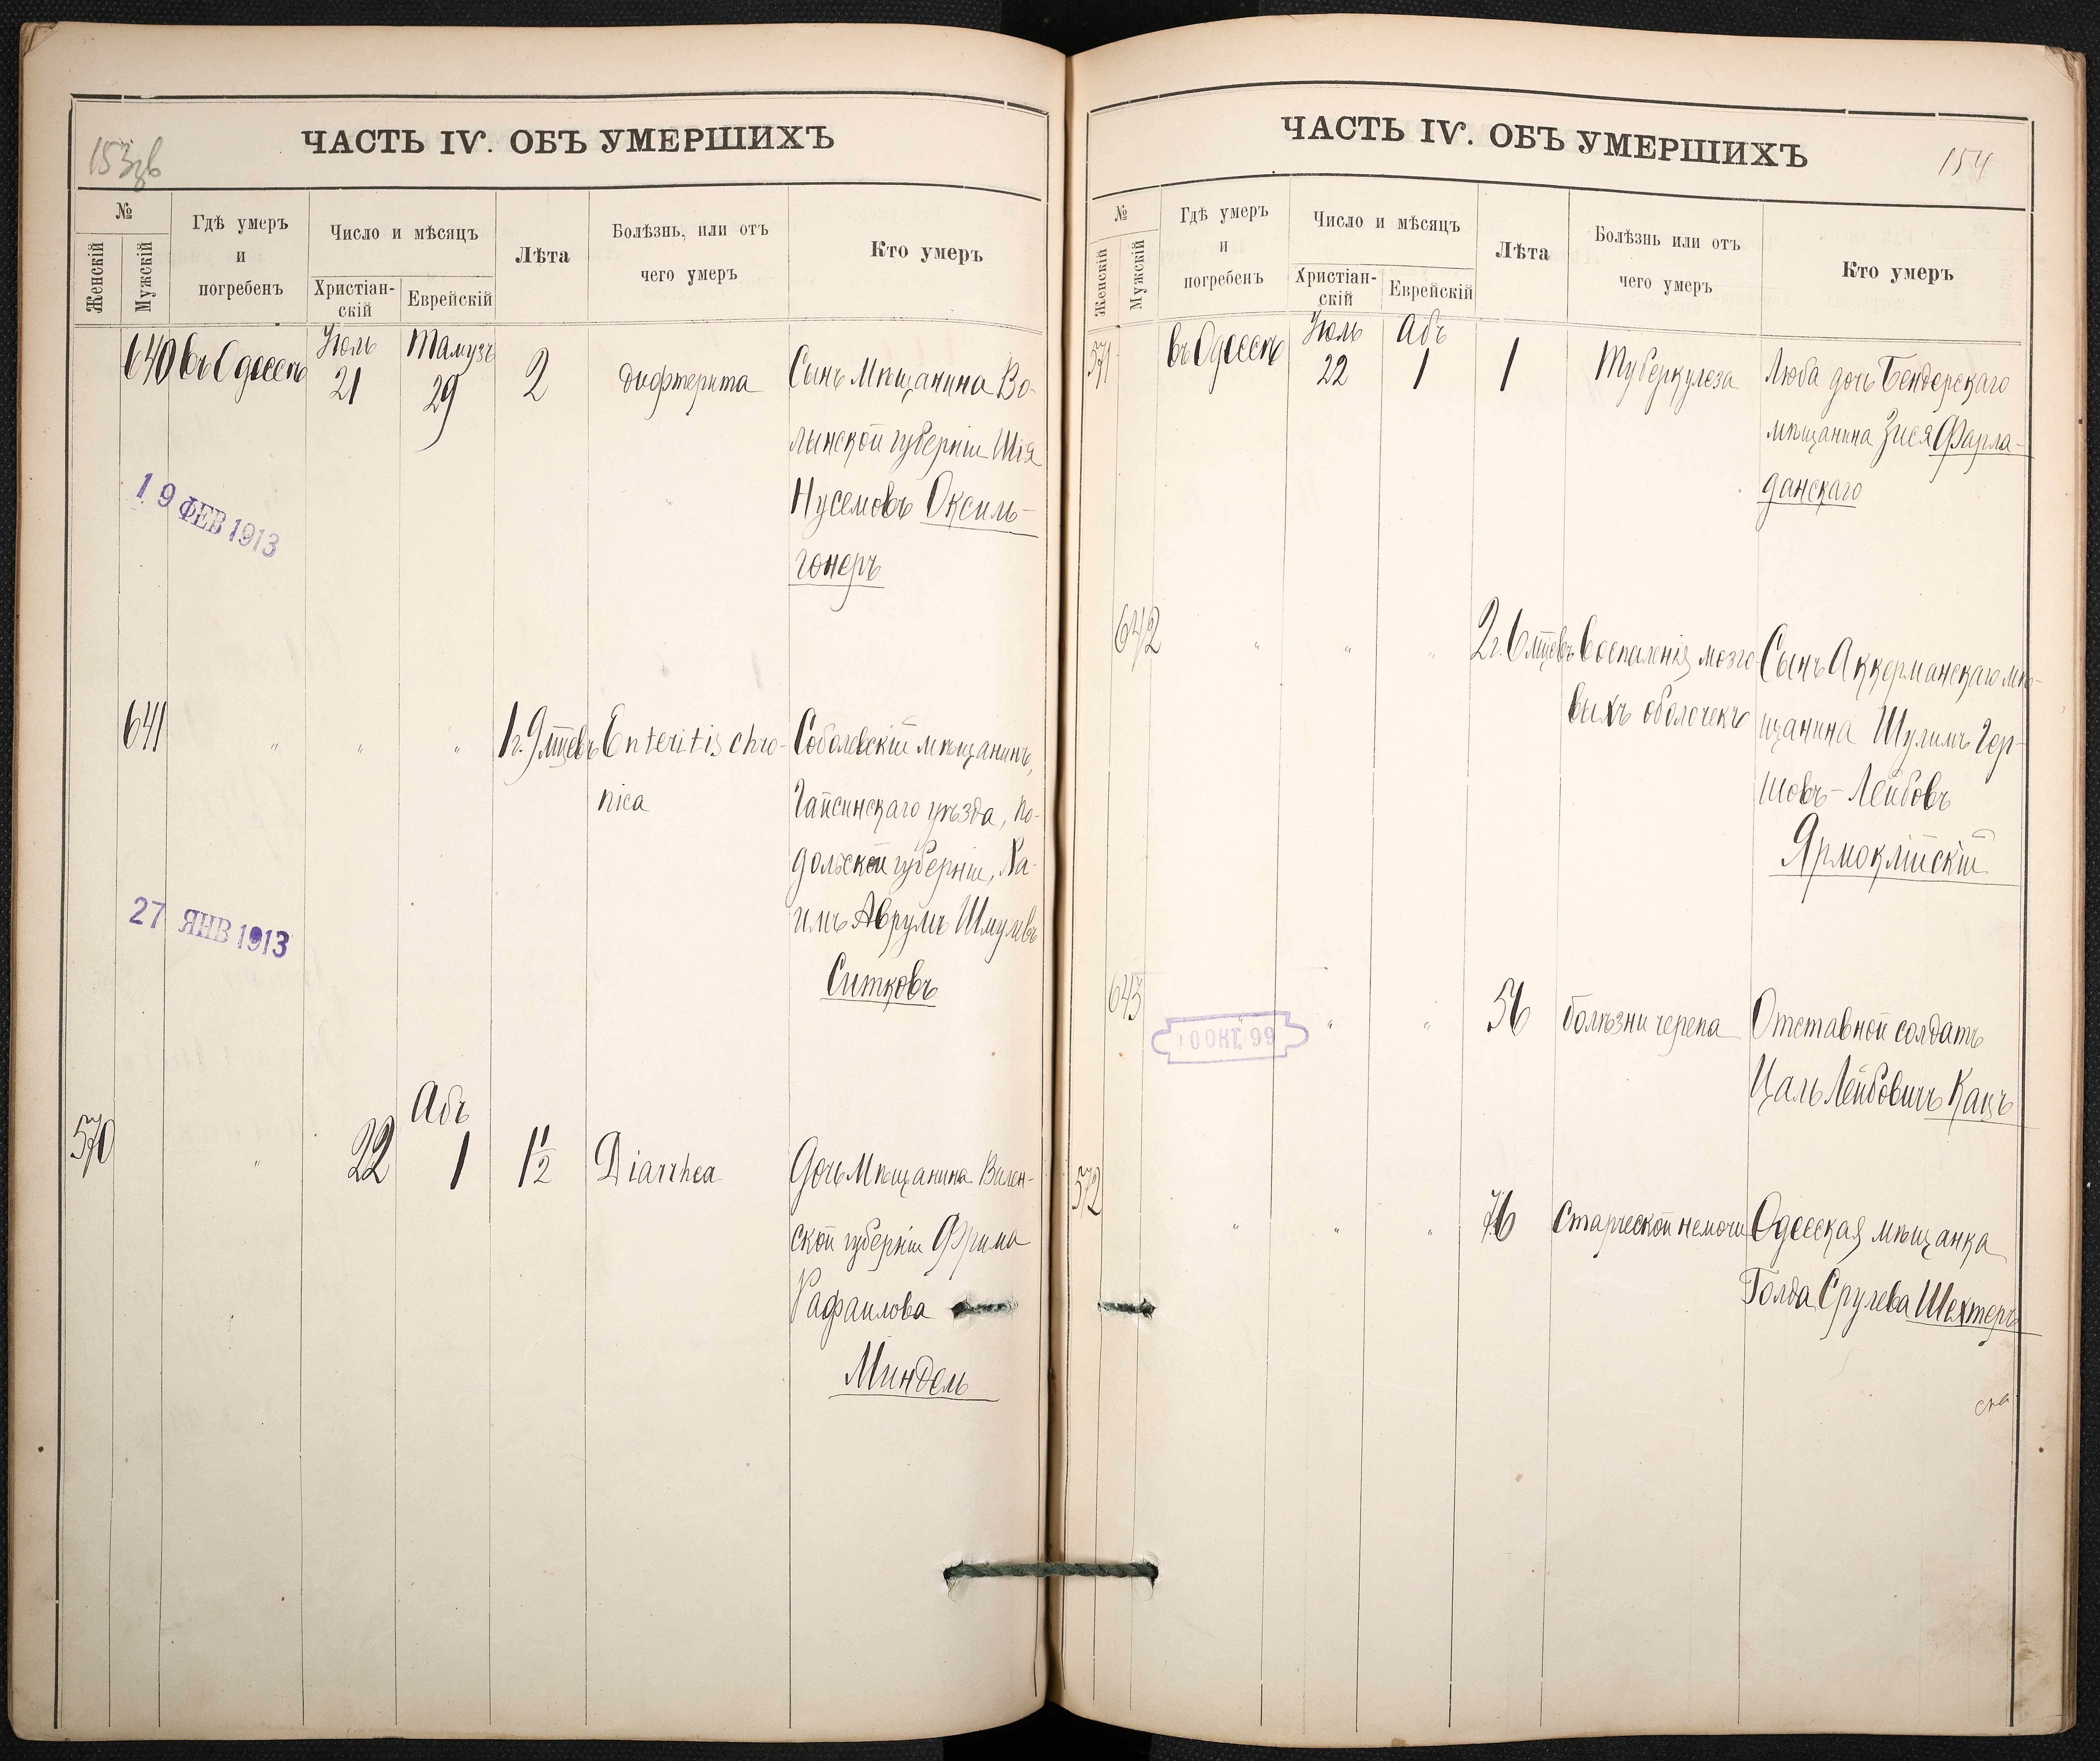 153об
ЧАСТЬ IV. ОБЪ УМЕРШИХЪ
№
Женскій
Мужскій
Гдѣ умеръ
и
погребенъ
Число и мѣсяцъ
Христіан-
скій
Еврейскій
Лѣта
Болѣзнь, или отъ
чего умеръ
Кто умеръ
640 въ Одессѣ Іюль 21 Тамузъ 29 2 дифтерита Сынъ Мѣщанина Во-
лынской губерніи Шія
Нусемовъ Оксиль-
гонеръ
19 ФЕВ 1913
641 " " " 1 г. 9 мцевъ Enteritis chro- Соболевскій мѣщанинъ,
nica Гайсинскаго уѣзда, По-
дольской губерніи, Ха-
имъ Аврумъ Шмулевъ
Ситковъ
27 ЯНВ 1913
Абъ
570 " 22 1 1 1/2 Diarrhea Дочь Мѣщанина Вилен-
ской губерніи Фрима
Рафаилова
Миндель
154
ЧАСТЬ IV. ОБЪ УМЕРШИХЪ
№
Женскій
Мужскій
Гдѣ умеръ
и
погребенъ
Число и мѣсяцъ
Христіан-
скій
Еврейскій
Лѣта
Болѣзнь или отъ
чего умеръ
Кто умеръ
571 въ Одессѣ Іюль 22 Абъ 1 1 Туберкулеза Люба дочь Бендерскаго
мѣщанина Зися Фарла-
данскаго
642 " " " 2 г. 6 мцевъ Воспаленія мозго- Сынъ Аккерманскаго мѣ-
выхъ оболочекъ щанина Шулимъ Гер-
шовъ-Лейбовъ
Ярмоклійскій
643 " " " 56 болѣзни черепа Отставной солдатъ
10 ОКТ. 99
Цаль Лейбовичъ Кацъ
572 " " " 76 Старческой немочи Одесская мѣщанка
Голда Срулева Шехтеръ